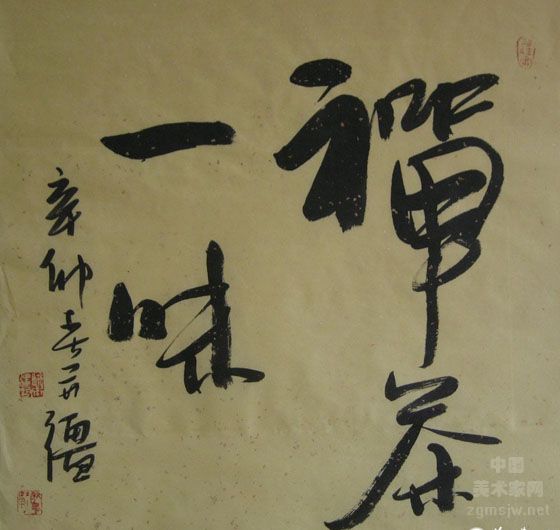 禪茶
一味
辛卯春
中国
美术家网
zgmsjw.net